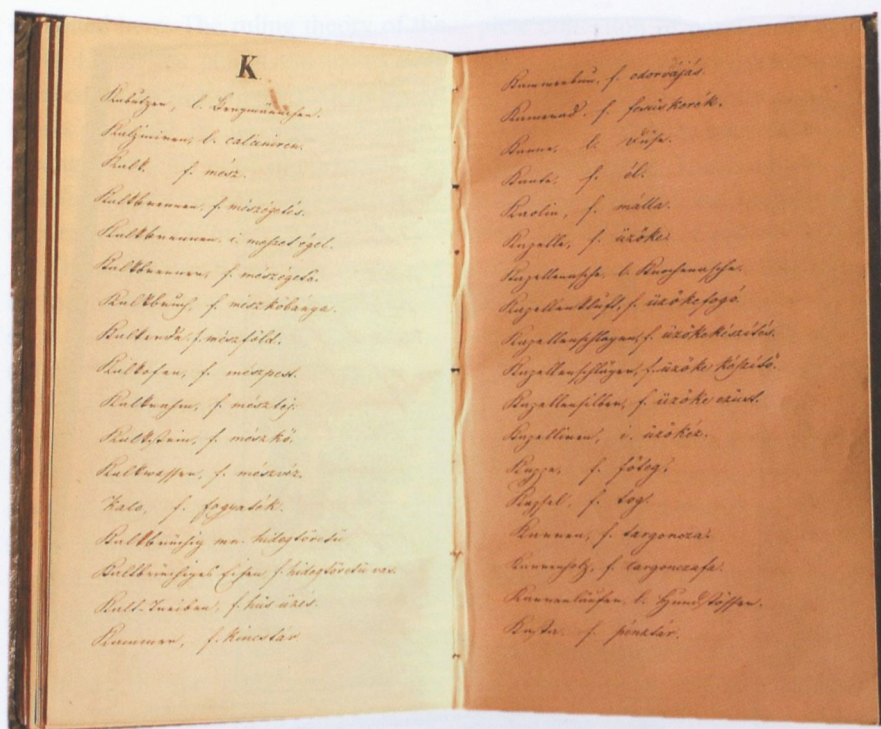 K
Kabützen, l. Bergmännchen.
Kalziniren, l. calciniren.
Kalk, f. mész.
Kalkbrennen, f. mészégetés.
Kalkbrennen, i. meszet éget.
Kalkbrenner, f. mészégető.
Kalkbruch, f. mészkőbánya.
Kalkerde, f. mészföld.
Kalkofen, f. mészpest.
Kalkrahm, f. mésztéj.
Kalkstein, f. mészkő.
Kalkwasser, f. mészvíz.
Kalo, f. fogyaték.
Kaltbrüchig mn. hidegtöretű
Kaltbrüchiges Eisen, f. hidegtöretű vas.
Kalt-Treiben, f. hűs űzés.
Kammer, f. kincstár.
Kammerbau, f. odorvájás.
Kamerad, f.
Kanne, l. Düse.
Kante, f. él.
Kaolin, f. málla.
Kapelle, f. űzőke.
Kapellenasche, l. Knochenasche.
Kapellenkluft, f. űzőkefogó.
Kapellenschlagen, f. űzőkekészítés.
Kapellenschläger, f. űzőke készítő.
Kapellensilber, f. űzőke ezüst.
Kapelliren, i. űzőkéz.
Kappe, f. főteg.
Kapsel, f. tog.
Karren, f. targoncza.
Karrenholz, f. targonczafa.
Karrenläufer, l. Hundstösser.
Kasta, f. pénztár.